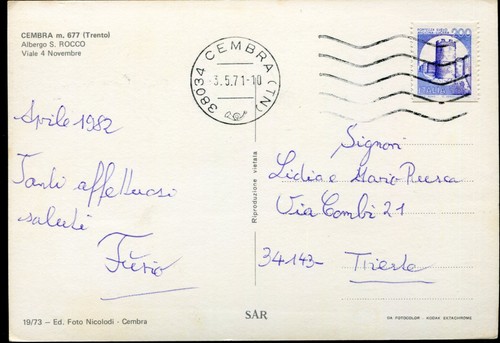 CEMBRA m. 677 (Trento)
Albergo S. ROCCO
Viale 4 Novembre
38034 CEMBRA (TN)
3.5.71-10
200
ITALIA
Aprile 1982
Tanti affettuosi
saluti
Fúrio
Riproduzione vietata
Signori
Lidia e Mario
Via Combi 21
34143- Trieste
19/73 - Ed. Foto Nicolodi - Cembra
SAR
DA FOTOCOLOR - KODAK EKTACHROME